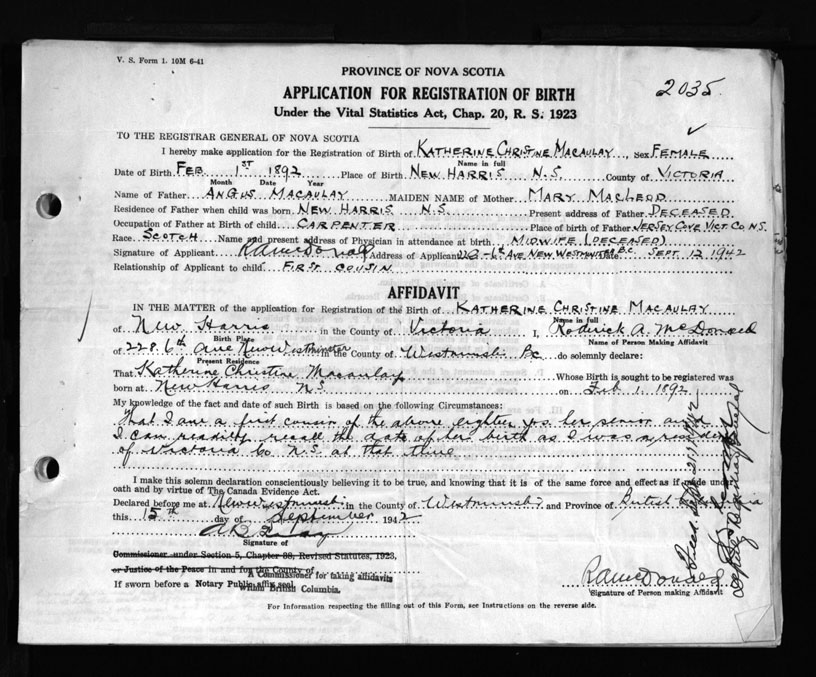 V. S. Form 1. 10M 6-41
PROVINCE OF NOVA SCOTIA
2035.
APPLICATION FOR REGISTRATION OF BIRTH
Under the Vital Statistics Act, Chap. 20, R. S. 1923
TO THE REGISTRAR GENERAL OF NOVA SCOTIA
I hereby make application for the Registration of Birth of KATHERINE CHRISTINE MACAULAY, Sex FEMALE
Name in full
Date of Birth FEB. 1ST 1892 Place of Birth NEW HARRIS N.S. County of VICTORIA
Month Date Year
Name of Father ANGUS MACAULAY MAIDEN NAME of Mother MARY MACLEOD
Residence of Father when child was born NEW HARRIS N.S. Present address of Father DECEASED
Occupation of Father at Birth of child CARPENTER Place of birth of Father JERSEY COVE VICT CO. N.S.
Race SCOTCH Name and present address of Physician in attendance at birth MIDWIFE (DECEASED)
Signature of Applicant RAMcDonald Address of Applicant 228-6th AVE NEW WESTMINSTER B.C. SEPT 12 1942
Relationship of Applicant to child FIRST COUSIN
AFFIDAVIT
IN THE MATTER of the application for Registration of the Birth of KATHERINE CHRISTINE MACAULAY
Name in full
of New Harris in the County of Victoria I, Roderick A. McDonald
Birth Place
Name of Person Making Affidavit
of 228 6th Ave New Westminster in the County of Westminster BC do solemnly declare:
Present Residence
That Katherine Christine Macaulay Whose Birth is sought to be registered was
born at New Harris N.S. on Feb 1, 1892
My knowledge of the fact and date of such Birth is based on the following Circumstances:
That I am a first cousin of the above eighteen yrs. her senior and
I can readily recall the date of her birth as I was a resident
of Victoria Co N.S. at that time
I make this solemn declaration conscientiously believing it to be true, and knowing that it is of the same force and effect as if made under
oath and by virtue of The Canada Evidence Act.
Declared before me at New Westminster in the County of Westminster and Province of British Columbia
this 15th day of September 1942
Signature of
Commissioner under Section 5, Chapter 38, Revised Statutes, 1923,
or Justice of the Peace in and for the County of
A Commissioner for taking affidavits
within British Columbia.
If sworn before a Notary Public affix seal.
RAMcDonald
Signature of Person making Affidavit
For Information respecting the filling out of this Form, see Instructions on the reverse side.